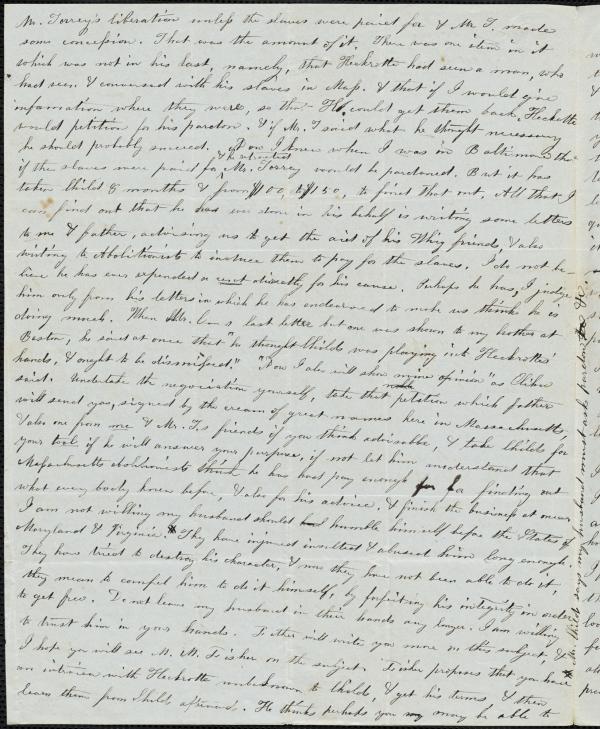 Mr. Torrey's liberation unless the slaves were paid for & Mr. T. made
some concession. That was the amount of it. There was one item in it
which was not in his last, namely, that Heckrotte had seen a man, who
had seen & conversed with his slaves in Mass. & that if I would give
information where they were, so that H. could get them back, Heckrotte
would petition for his pardon. & if Mr. T said what he thought necessary
he should probably succeed. Now I knew when I was in Baltimore that
if the slaves were paid for & he retracted Mr. Torrey would be pardoned. But it has
taken Child 8 months & from $100, to $150, to find that out. All that I
can find out that he has ever done in his behalf is writing some letters
to me & father, advising us to get the aid of his Whig friends, & also
writing to Abolitionists to induce them to pay for the slaves. I do not be-
lieve he has ever expended a cent directly for his cause. Perhaps he has, I judge
him only from his letters in which he has endeavored to make us think he is
doing much. When Mr. last letter but one was shown to my brother at
Boston, he said at once that he thought Childs was playing into Heckrotte's
hands, & ought to be dismissed." "Now I also will show mine opinion" as Elihu
said. Undertake the negociation yourself, take that petition which father
will send you, signed by the cream of great names here in Massachusetts,
& also one from me & Mr. T's friends if you think advisable, & take Childs for
your tool if he will answer your purposes, if not let him understand that
Massachusetts abolitionists think he has had pay enough for finding out
what every body knew before, & also for his advice, & finish the business at once
I am not willing my husband should humble himself before the States of
Maryland & Virginia. * They have injured insulted & abused him long enough.
They have tried to destroy his character, & now they have not been able to do it,
they mean to compel him to do it himself, by forfeiting his integrity in order
to get free. Do not leave my husband in their hands any longer. I am willing
to trust him in your hands. Father will write you more on this subject, &
I hope you will see M. M. Fisher on the subject. Fisher proposes that you have
an interview with Heckrotte unbeknown to Childs, & get his terms & then
learn them from Childs afterward. He thinks perhaps you may be able to
* Mr. Child says my husband must ask pardon &c.